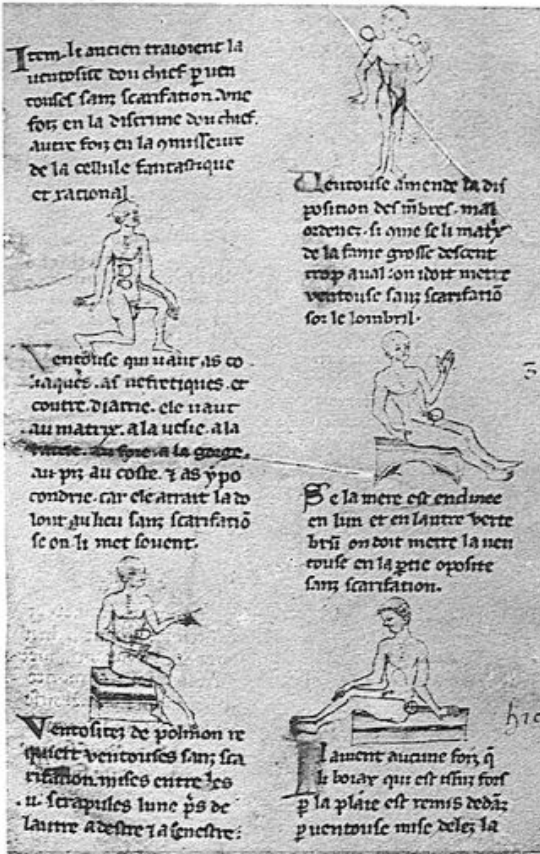 Item. li ancien traioient la
uentosite dou chief p uen
touses sanz scarifation. vne
foiz en la discrime dou chief.
autre foiz en la 9misseure
de la cellule fantastique
et racional
Ventouse qui uaut as co
liaques. as nefretiques. et
contre. diarrie. ele uaut
au matrix. a la uesie. a la
au foie. a la gorge.
au piz au coste. ⁊ as ypo
condrie. car ele atrait la do
lour au lieu sanz scarifatiō
se on li met souent.
Ventositez de polmon re
quiert ventouses sanz sca
rifation. mises entre les
.ii. scrapules lune ps de
lautre a destre ⁊ a senestre:
Uentouse amende la dis
position des mbres. mal
ordenez. si que se li matx
de la fame grosse descent
trop aual: on idoit metre
ventouse sanz scarifatiō
sor le lombril.
Se la mere est enclinee
en lun et en lautre verte
on doit metre la uen
touse en la ptie oposite
sanz scarifation.
Il auient aucune foiz q̄
li boiax qui est issuz fors
p la plaie est remis dedāz
p uentouse mise delez la